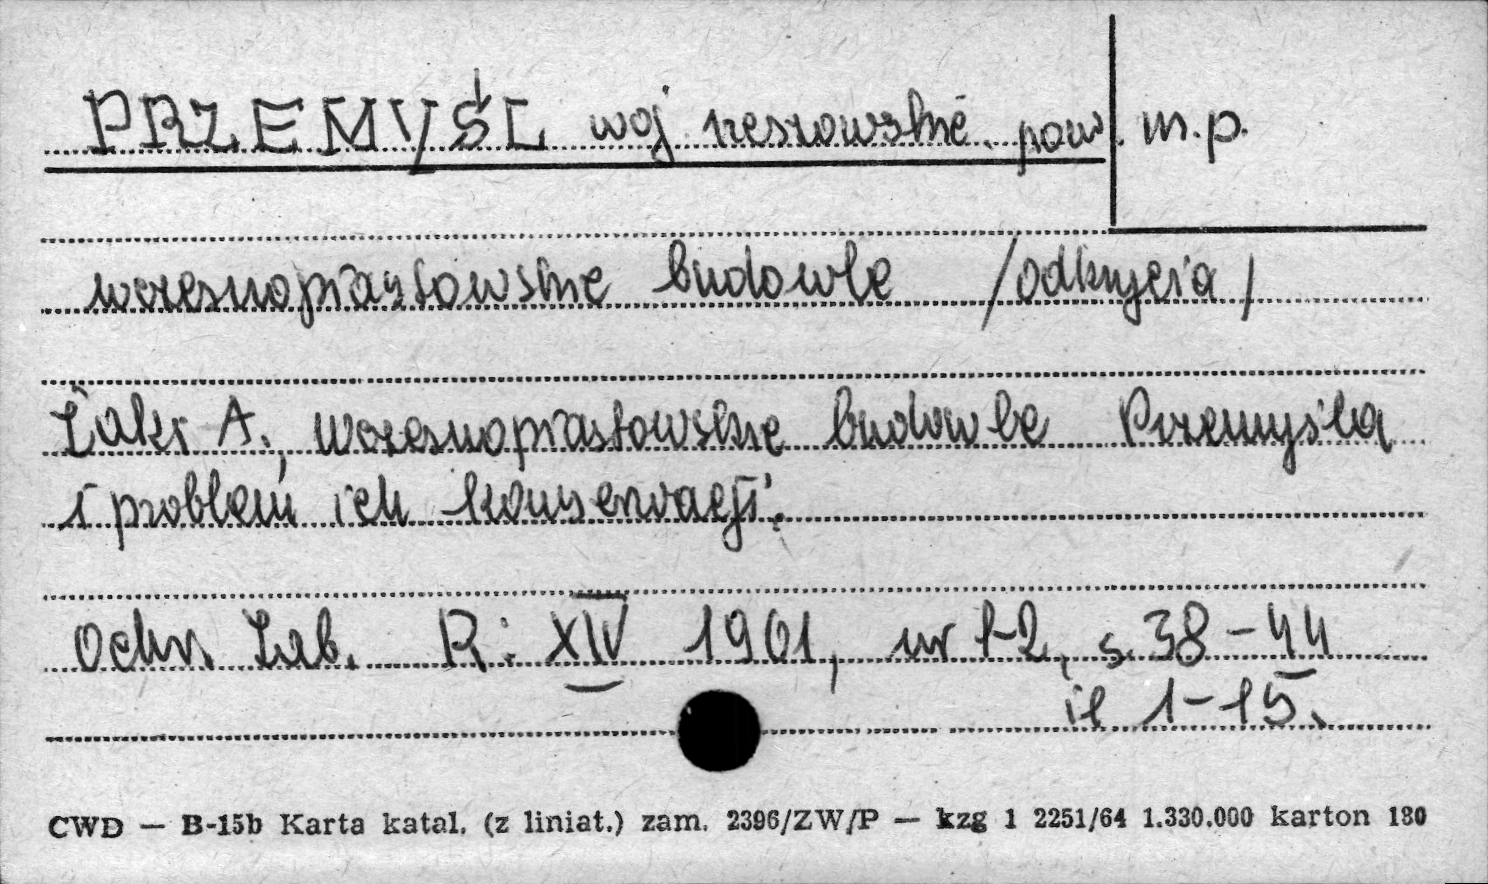 PRZEMYŚL woj. rzeszowskie. pow. m.p.
wczesnopiastowskie budowle /odkrycia/
Żaki A., wczesnopiastowskie budowle Przemyśla
i problem ich konserwacji.
Ochr. Zab. R: XIV 1961, nr 1-2, s. 38-44
il 1-15.
CWD — B-15b Karta katal. (z liniat.) zam. 2396/ZW/P — kzg 1 2251/64 1.330.000 karton 180